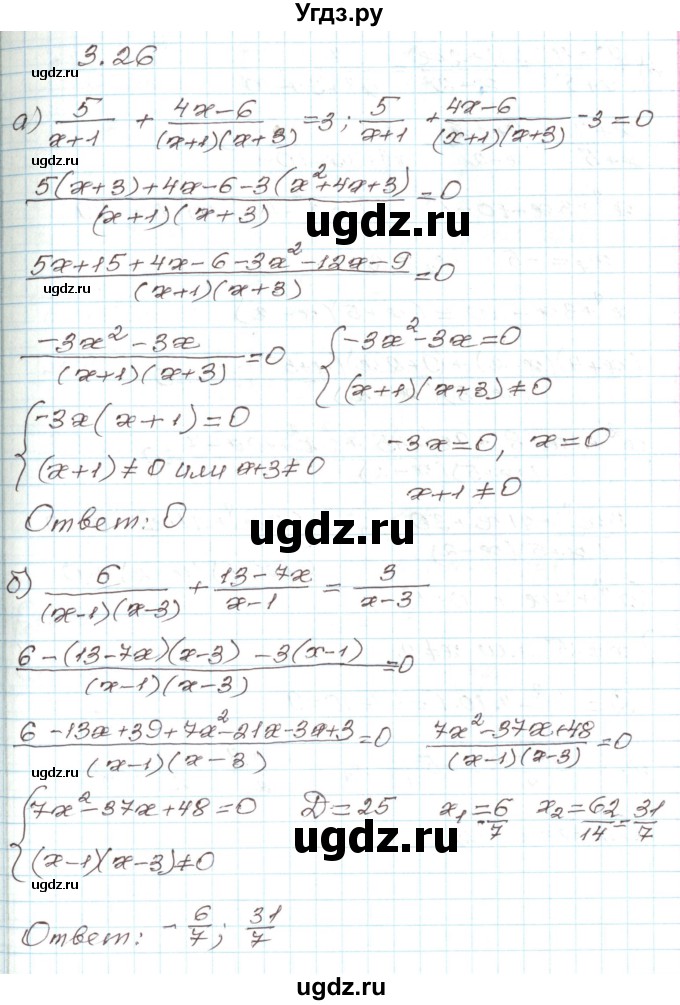 Угдз.ру
3.26
ugdz.ru
а) 5/(x+1) + (4x-6)/((x+1)(x+3)) =3; 5/(x+1) + (4x-6)/((x+1)(x+3)) -3=0
ugdz.ru
(5(x+3)+4x-6-3(x²+4x+3))/((x+1)(x+3)) =0
ugdz.ru
(5x+15+4x-6-3x²-12x-9)/((x+1)(x+3)) =0
ugdz.ru
(-3x²-3x)/((x+1)(x+3)) =0 { -3x²-3x=0
(x+1)(x+3)≠0
ugdz.ru
{ -3x(x+1)=0
-3x=0, x=0
(x+1)≠0 или x+3≠0
x+1≠0
ugdz.ru
Ответ: 0
ugdz.ru
б) 6/((x-1)(x-3)) + (13-7x)/(x-1) = 3/(x-3)
ugdz.ru
(6-(13-7x)(x-3) -3(x-1))/((x-1)(x-3)) =0
ugdz.ru
(6-13x+39+7x²-21x-3x+3)/((x-1)(x-3)) =0 (7x²-37x+48)/((x-1)(x-3)) =0
ugdz.ru
{ 7x²-37x+48=0 D=25 x₁=-6/7 x₂=62/14=31/7
ugdz.ru
(x-1)(x-3)≠0
ugdz.ru
Ответ: -6/7; 31/7
ugdz.ru
ugdz.ru